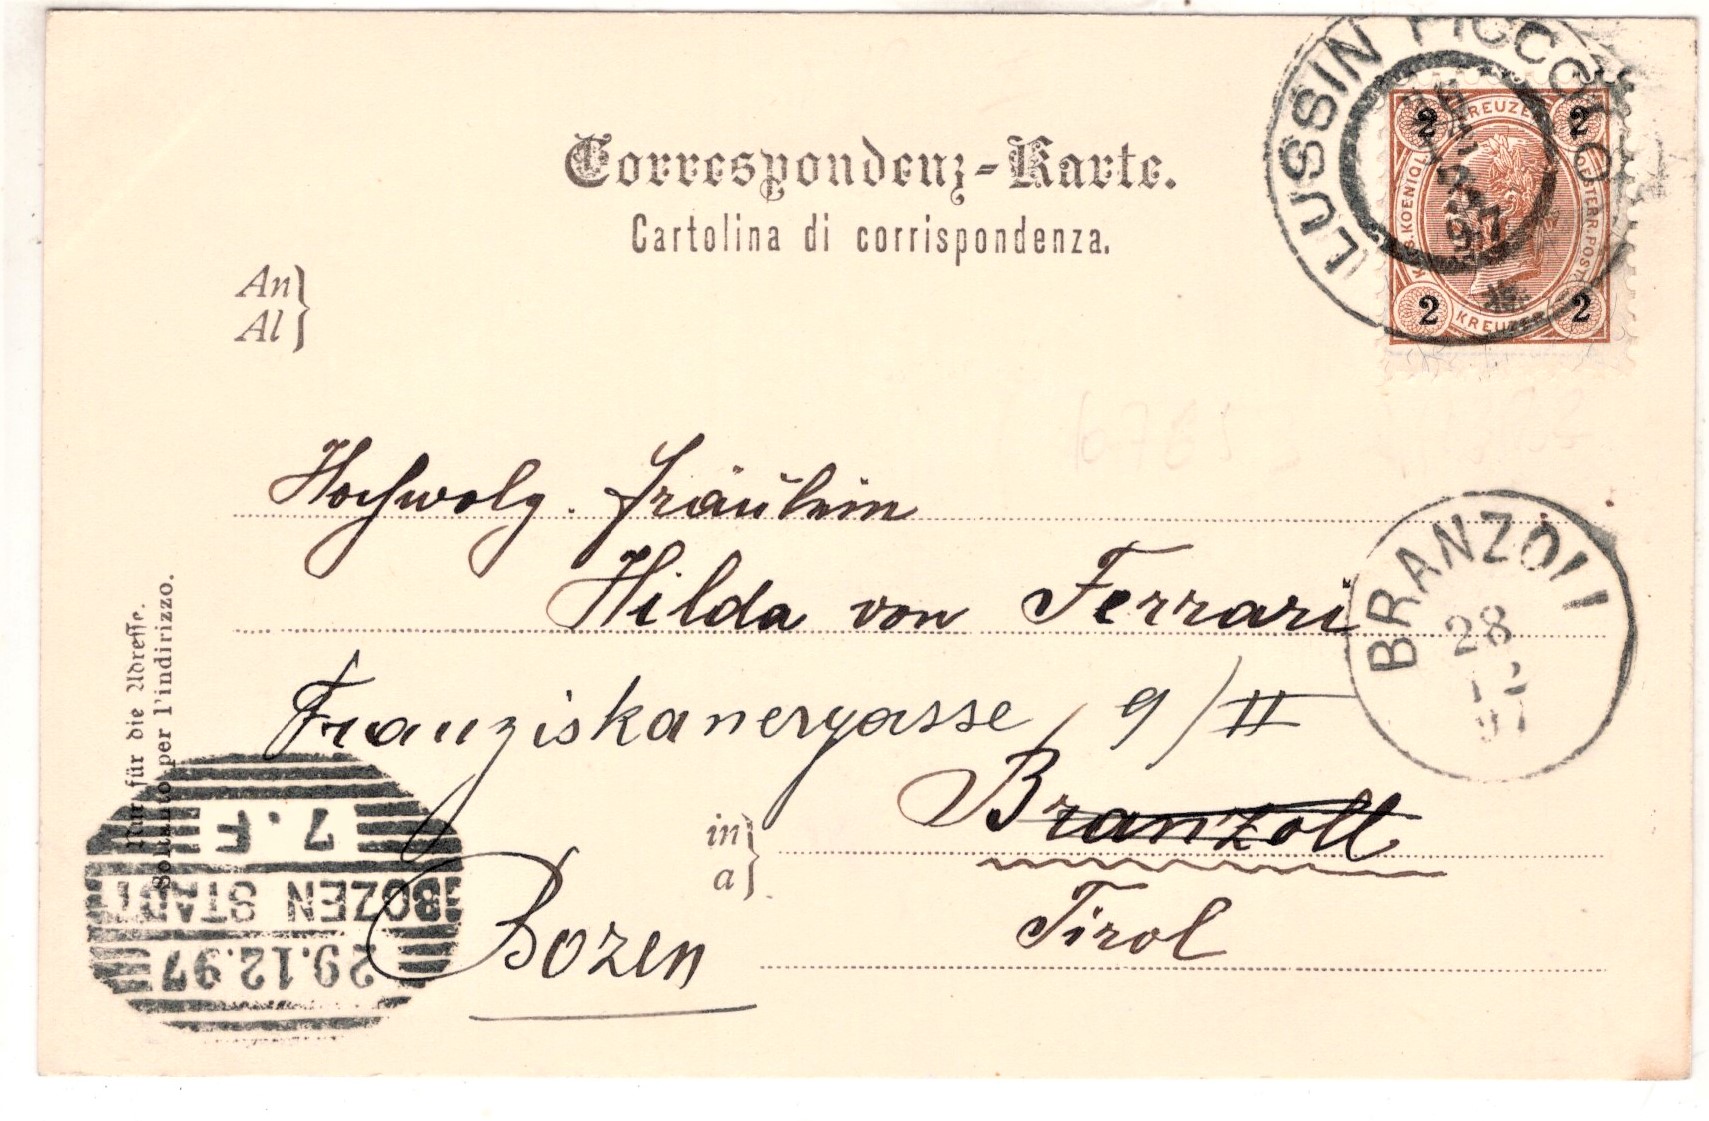 Correspondenz-Karte.
Cartolina di corrispondenza.
An
Al
LUSSIN PICCOLO
12
97
2 KREUZER 2
OESTERR. POST
2 KREUZER 2
Hochwolg. Fräulein
Hilda von Ferrari
Franziskanergasse 9/II
BRANZOLL
28
12
97
in
a
Branzoll
Tirol
Bozen
Nur für die Adresse.
Soltanto per l'indirizzo.
7.F
BOZEN STADT
29.12.97